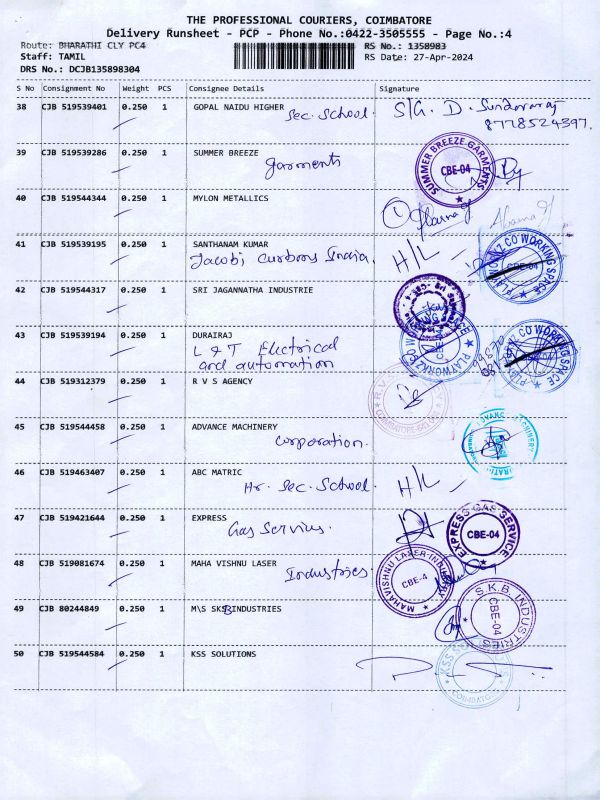 THE PROFESSIONAL COURIERS, COIMBATORE
Delivery Runsheet - PCP - Phone No.:0422-3505555 - Page No.:4
Route: BHARATHI CLY PC4
RS No.: 1358983
Staff: TAMIL
RS Date: 27-Apr-2024
DRS No.: DCJB135898304
S No Consignment No Weight PCS Consignee Details Signature
38 CJB 519539401 0.250 1 GOPAL NAIDU HIGHER Sec. School. S/G. D. Sundararaj
8778524397.
39 CJB 519539286 0.250 1 SUMMER BREEZE
garments
SUMMER BREEZE GARMENTS
CBE-04
40 CJB 519544344 0.250 1 MYLON METALLICS
41 CJB 519539195 0.250 1 SANTHANAM KUMAR
Jacobi Carbons India. H/L
PLATWORKZ CO WORKING SPACE
42 CJB 519544317 0.250 1 SRI JAGANNATHA INDUSTRIE
43 CJB 519539194 0.250 1 DURAIRAJ
L & T Electrical
and automation
PLATWORKZ CO WORKING SPACE
44 CJB 519312379 0.250 1 R V S AGENCY
45 CJB 519544458 0.250 1 ADVANCE MACHINERY
corporation.
46 CJB 519463407 0.250 1 ABC MATRIC
Hr. Sec. School. H/L
47 CJB 519421644 0.250 1 EXPRESS
Gas Service.
EXPRESS GAS SERVICE
CBE-04
48 CJB 519081674 0.250 1 MAHA VISHNU LASER
Industries
MAHAVISHNU LASER INDUSTRY
CBE-4
49 CJB 80244849 0.250 1 M\S SKB INDUSTRIES
S.K.B. INDUSTRIES
CBE-04
50 CJB 519544584 0.250 1 KSS SOLUTIONS